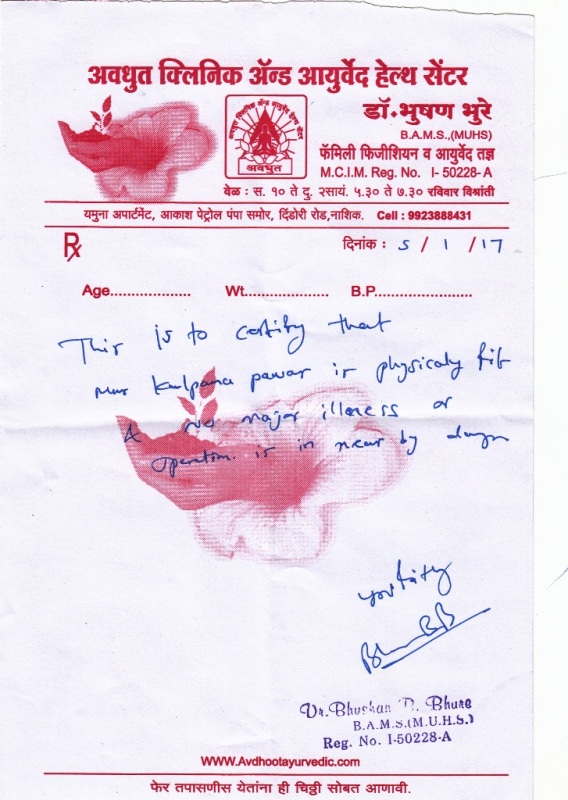 अवधुत क्लिनिक ॲन्ड आयुर्वेद हेल्थ सेंटर
अवधुत
डॉ. भुषण भुरे
B.A.M.S.,(MUHS)
फॅमिली फिजीशियन व आयुर्वेद तज्ञ
M.C.I.M. Reg. No. I- 50228-A
वेळ : स. १० ते दु. २ सायं. ५.३० ते ७.३० रविवार विश्रांती
यमुना अपार्टमेंट, आकाश पेट्रोल पंपा समोर, दिंडोरी रोड, नाशिक. Cell : 9923888431
Rx
दिनांक : 5 / 1 / 17
Age................... Wt.................... B.P.......................
This is to certify that
Kalpana pawar is physicaly fit
& no major illness or
operation is in near by days
Dr. Bhushan B. Bhure
B.A.M.S.(M.U.H.S.)
Reg. No. I-50228-A
WWW.Avdhootayurvedic.com
फेर तपासणीस येतांना ही चिठ्ठी सोबत आणावी.